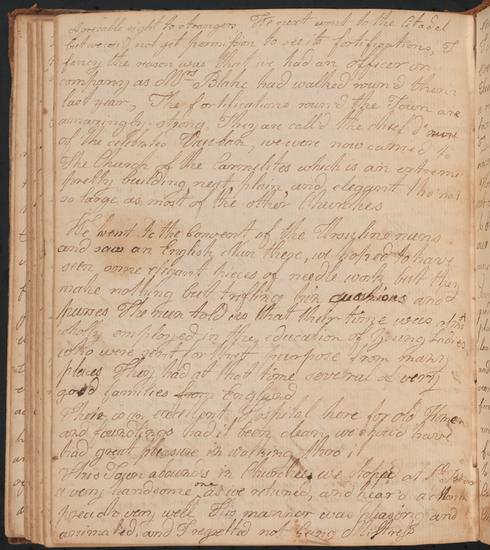 agreeable sight to strangers We next went to the Citadel
but we could not get permission to see its fortifications, I
fancy the reason was that we had an officer in
company as Mrs Blake had walked round them
last year, The fortifications round the Town are
amazingly strong They are call'd the chief d'
of the celebrated Vauban, we were now carried to
The Church of the Carmelites which is an extreme
pretty building neat plain and elegant tho' not
so large as most of the other Churches
We went to the Convent of the Ursuline nuns
and saw an English Nun there, we hoped to have
seen some elegant pieces of needle work but they
make nothing but trifling pin cushions and
purses The nun told us that their time was almost
wholly employed in the education of young Ladies
who were sent for that purpose from many
places They had at that time several of very
good families from England
There is an excellent Hospital here for old
and foundlings had it been clean we should have
had great pleasure in walking thro it
This Town abounds in Churches we stopt at St
a very handsome one as we returned, and heard a Monk
preach very well His manner was pleasing and
animated, and I regretted not being